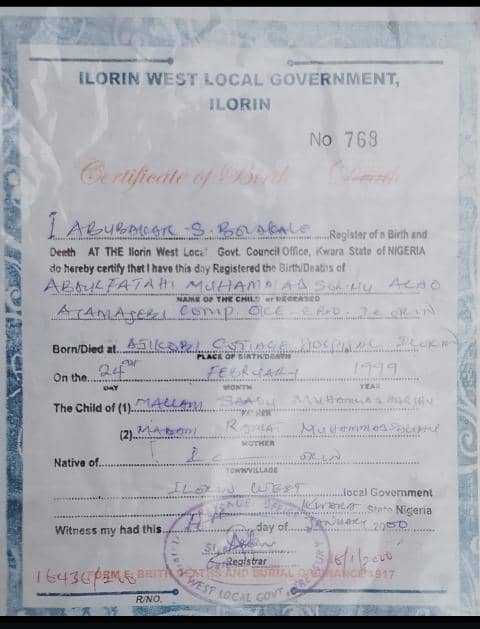 ILORIN WEST LOCAL GOVERNMENT,
ILORIN
No 768
Certificate of Birth Death
I ABUBAKAR S. BOLAKALE Register of a Birth and
Death AT THE Ilorin West Local Govt. Council Office, Kwara State of NIGERIA
do hereby certify that I have this day Registered the Birth/Deaths of
ABDULFATAHI MUHAMMAD SALIHU ALAO
NAME OF THE CHILD or DECEASED
COMP. ILORIN
Born/Died at COTTAGE HOSPITAL ILORIN
PLACE OF BIRTH/DEATH
On the 24 FEBRUARY 1999
DAY MONTH YEAR
The Child of (1) MALLAM SAADU MUHAMMAD SALIHU
FATHER
(2) MADAM RAMAT MUHAMMAD SALIHU
MOTHER
Native of ILORIN
TOWN/VILLAGE
ILORIN WEST local Government
KWARA State Nigeria
Witness my had this day of JANUARY 2000
Registrar
/1/2000
FORM E. BRITH DEATHS AND BURIAL ORDINANCE 1917
WEST LOCAL GOVT
R/NO.